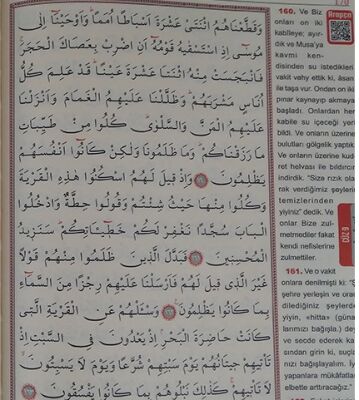 وَقَطَّعْنَاهُمُ اثْنَتَيْ عَشْرَةَ اَسْبَاطًا اُمَمًا وَاَوْحَيْنَٓا اِلٰى
مُوسٰٓى اِذِ اسْتَسْقٰيهُ قَوْمُهُٓ اَنِ اضْرِبْ بِعَصَاكَ الْحَجَرَ
فَانْبَجَسَتْ مِنْهُ اثْنَتَا عَشْرَةَ عَيْنًا قَدْ عَلِمَ كُلُّ
اُنَاسٍ مَشْرَبَهُمْ وَظَلَّلْنَا عَلَيْهِمُ الْغَمَامَ وَاَنْزَلْنَا
عَلَيْهِمُ الْمَنَّ وَالسَّلْوٰى كُلُوا مِنْ طَيِّبَاتِ
مَا رَزَقْنَاكُمْ وَمَا ظَلَمُونَا وَلٰكِنْ كَانُٓوا اَنْفُسَهُمْ
يَظْلِمُونَ وَاِذْ قِيلَ لَهُمُ اسْكُنُوا هٰذِهِ الْقَرْيَةَ
وَكُلُوا مِنْهَا حَيْثُ شِئْتُمْ وَقُولُوا حِطَّةٌ وَادْخُلُوا
الْبَابَ سُجَّدًا نَغْفِرْ لَكُمْ خَطِٓيـَٔاتِكُمْ سَنَزِيدُ
الْمُحْسِنِينَ فَبَدَّلَ الَّذِينَ ظَلَمُوا مِنْهُمْ قَوْلًا
غَيْرَ الَّذِي قِيلَ لَهُمْ فَاَرْسَلْنَا عَلَيْهِمْ رِجْزًا مِنَ السَّمَٓاءِ
بِمَا كَانُوا يَظْلِمُونَ وَسْـَٔلْهُمْ عَنِ الْقَرْيَةِ الَّتِي
كَانَتْ حَاضِرَةَ الْبَحْرِ اِذْ يَعْدُونَ فِي السَّبْتِ اِذْ
تَأْتِيهِمْ حِيتَانُهُمْ يَوْمَ سَبْتِهِمْ شُرَّعًا وَيَوْمَ لَا يَسْبِتُونَ
لَا تَأْتِيهِمْ كَذٰلِكَ نَبْلُوهُمْ بِمَا كَانُوا يَفْسُقُونَ
160. Ve Biz
onları on iki
kabîleye; ayır-
dık ve Musa'ya
kavmi ken-
disinden su istedikleri
vakit vahy ettik ki, âsan
ile taşa vur. Ondan on iki
pınar kaynayıp akmaya
başladı. Onlardan her
kabile su içeceği yeri
bildi. Ve onların üzerine
bulutları gölgelik yaptık.
Ve onların üzerine kud-
ret helvası ile bıldırcın
indirdik. "Size rızık ola-
rak verdiğimiz şeylerin
temizlerinden
yiyiniz" dedik. Ve
onlar Bize zul-
metmediler fakat
kendi nefislerine
zulmettiler.
161. Ve o vakit
onlara denilmişti ki: "Ş